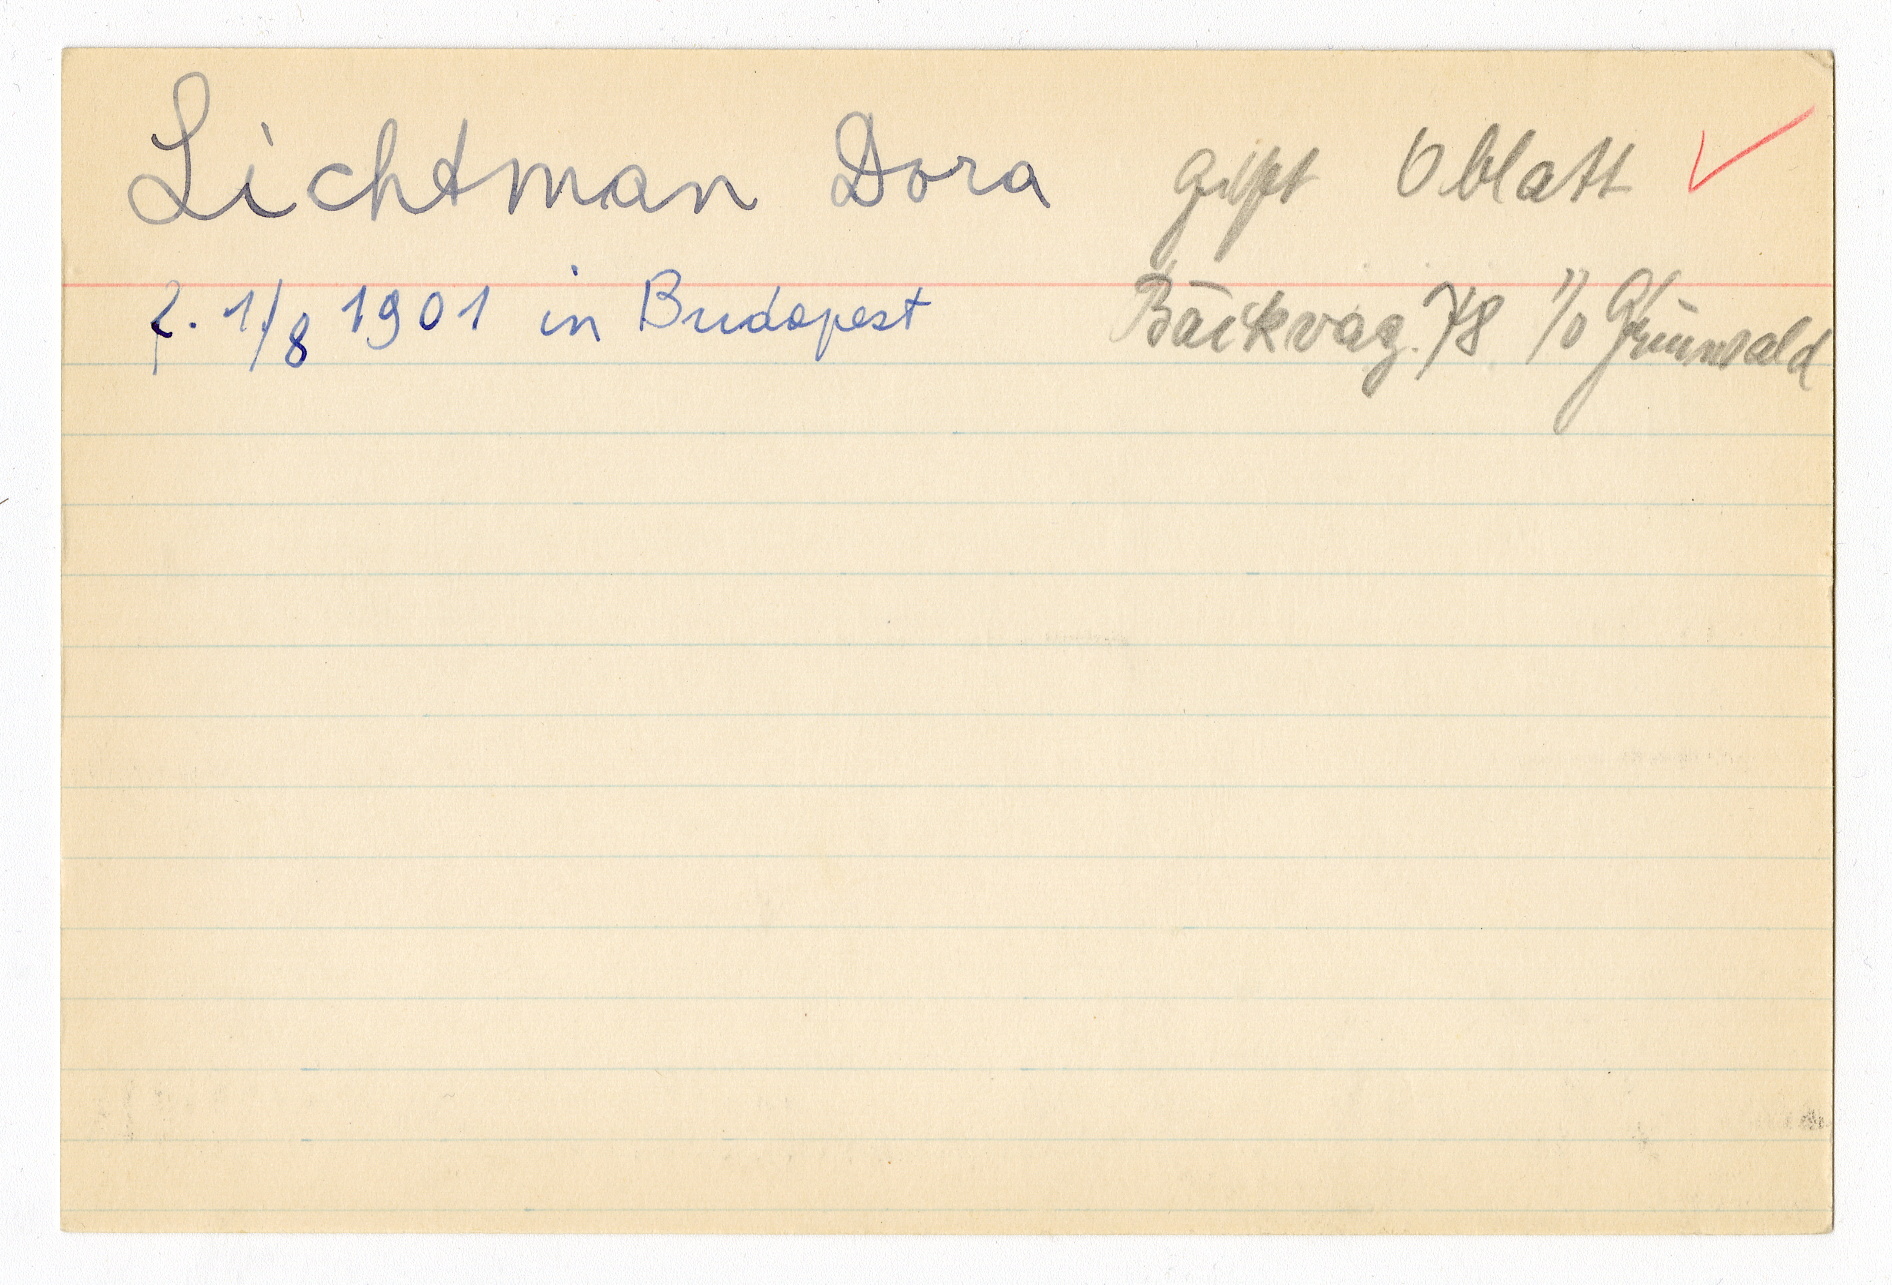 Lichtman Dora gift Oblatt ✓
f. 1/8 1901 in Budapest Bäckväg. 78 c/o Grünwald